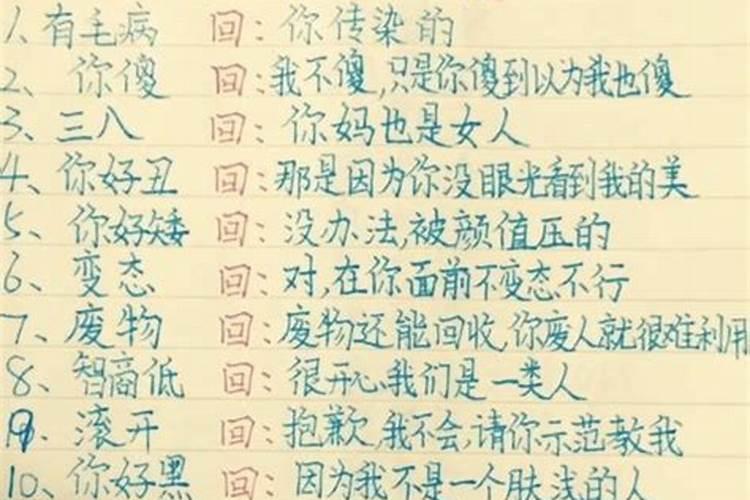 1、有毛病 回:你传染的
2、你傻 回:我不傻,只是你傻到以为我也傻
3、三八 回:你妈也是女人
4、你好丑 回:那是因为你没眼光看到我的美
5、你好矮 回:没办法,被颜值压的
6、变态 回:对,在你面前不变态不行
7、废物 回:废物还能回收,你废人就很难利用
8、智商低 回:很开心我们是一类人
9、滚开 回:抱歉,我不会,请你示范教我
10、你好黑 回:因为我不是一个肤浅的人